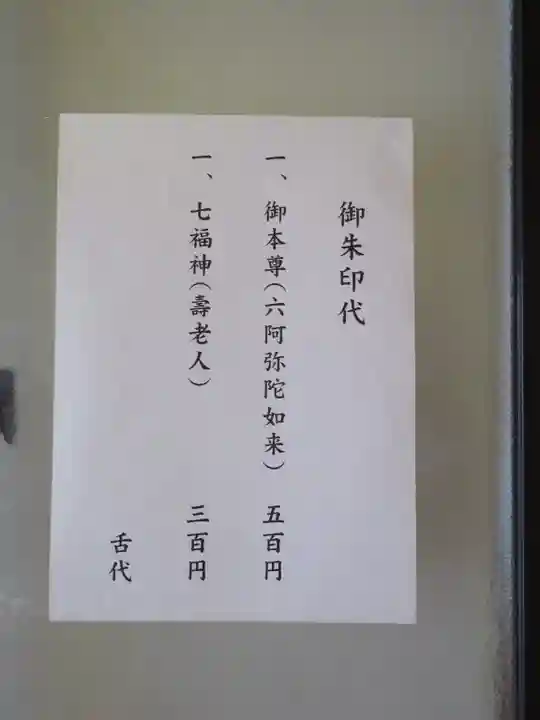 御朱印代
一、御本尊(六阿弥陀如来) 五百円
一、七福神(壽老人) 三百円
舌代